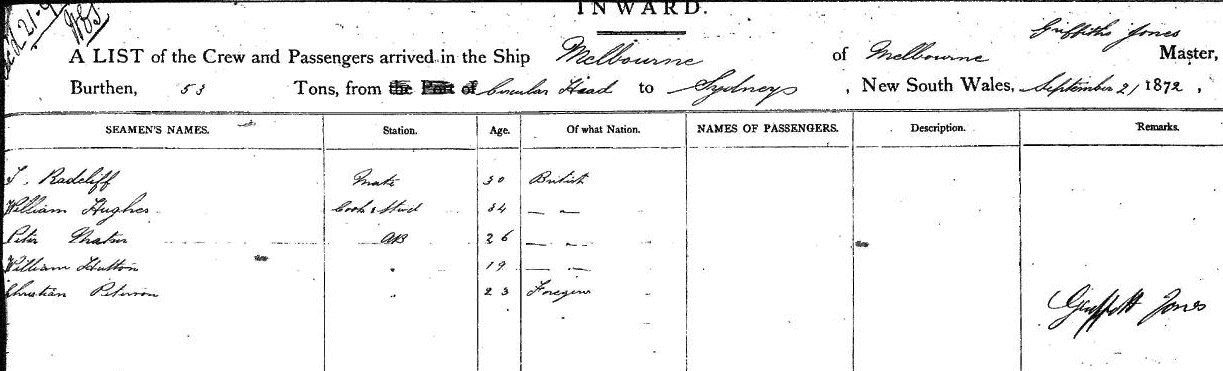 INWARD.
Griffiths Jones
A LIST of the Crew and Passengers arrived in the Ship Melbourne of Melbourne Master,
Burthen, 53 Tons, from the Port of Circular Head to Sydney, New South Wales, September 21 1872,
SEAMEN'S NAMES. Station. Age. Of what Nation. NAMES OF PASSENGERS. Description. Remarks.
Radcliff Mate 30 British
William Hughes Cook & Stwd 34 — —
Peter AB 26 — —
William Hutton " 19 — —
Christian Peterson " 23 Foregine
Griffith Jones